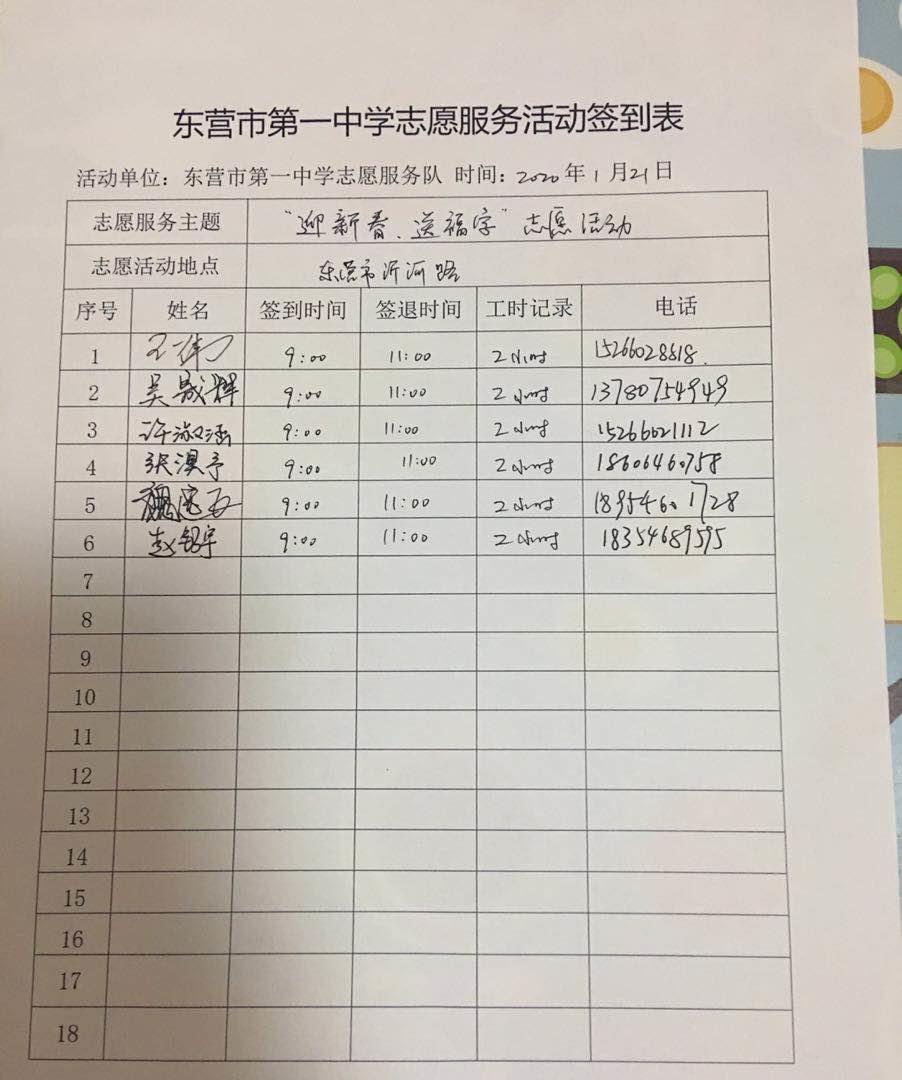 东营市第一中学志愿服务活动签到表
活动单位：东营市第一中学志愿服务队 时间：2020年1月21日
志愿服务主题 “迎新春、送福字”志愿活动
志愿活动地点 东营市沂河路
序号 姓名 签到时间 签退时间 工时记录 电话
1 王伟 9:00 11:00 2小时 15266028618.
2 吴晟辉 9:00 11:00 2小时 13780754949
3 许淑涵 9:00 11:00 2小时 15266021112
4 张澳予 9:00 11:00 2小时 18606460758
5 9:00 11:00 2小时 18954601728
6 赵铭宇 9:00 11:00 2小时 18354689595
7
8
9
10
11
12
13
14
15
16
17
18